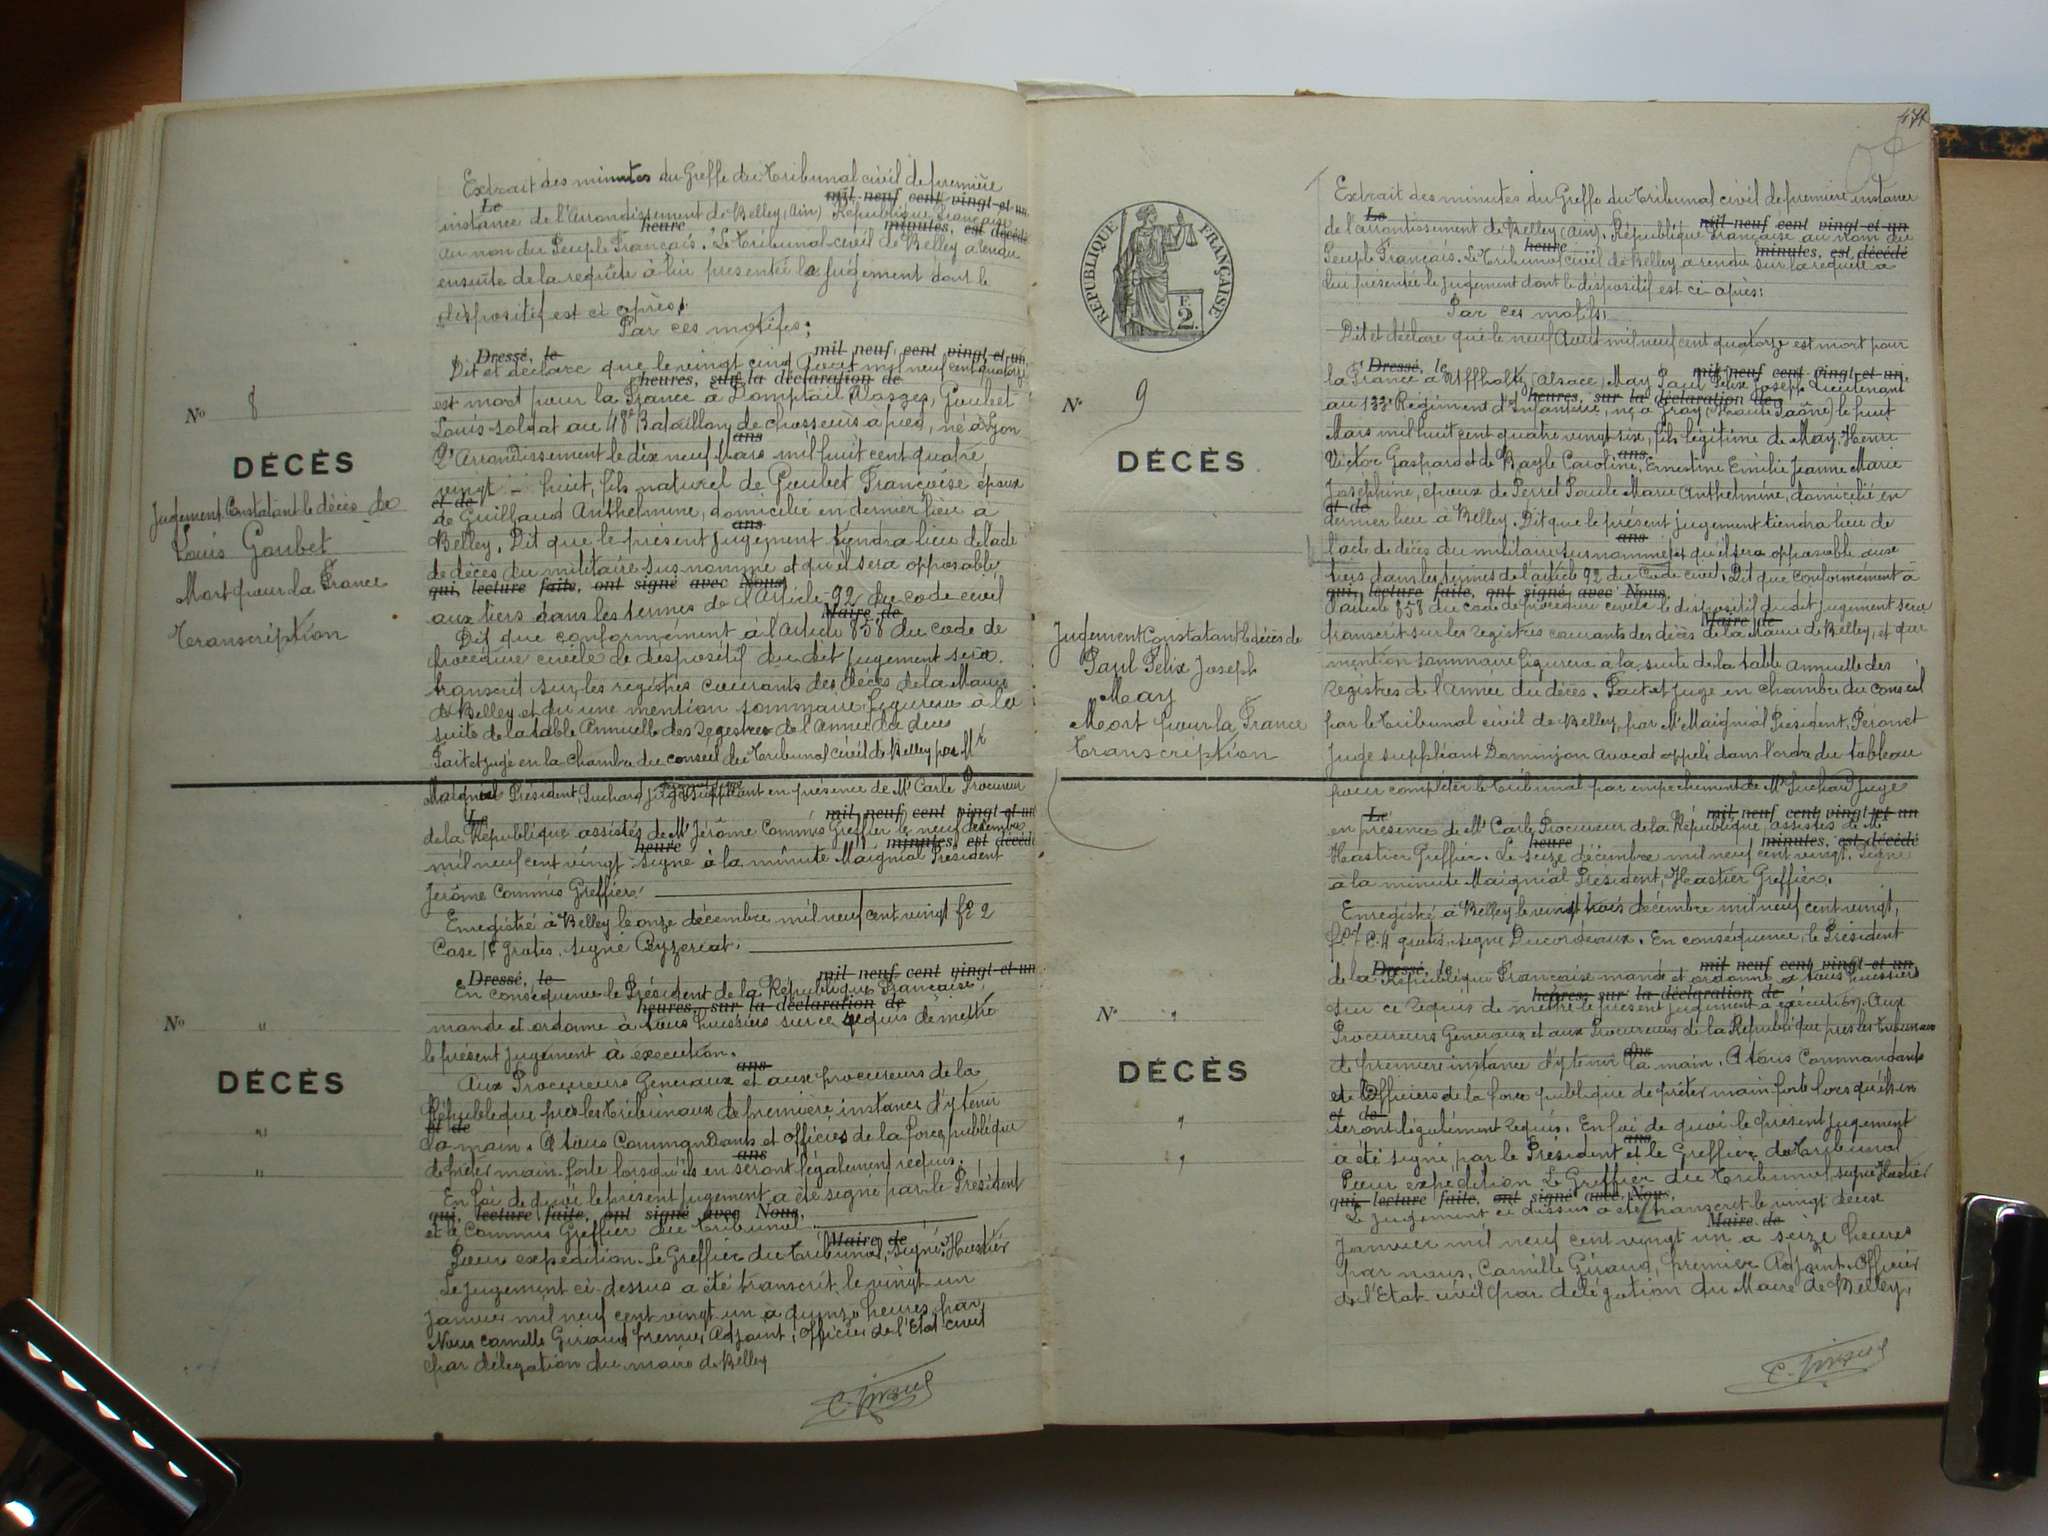 Extrait des minutes du Greffe du Tribunal civil de première
Le mil neuf cent vingt et un
instance de l'Arrondissement de Belley (Ain) République Française
heure minutes, est décédé
au nom du Peuple Français. Le Tribunal civil de Belley a rendu
ensuite de la requête à lui présentée le jugement dont le
dispositif est ci après:
Par ces motifs:
Dressé, le mil neuf cent vingt et un
Dit et déclare que le vingt cinq Août mil neuf cent quatorze
heures, sur la déclaration de
est mort pour la France à Domptail Vosges, Goubet
Louis soldat au 48e Bataillon de chasseurs à pied, né à Lyon
ans
2e Arrondissement le dix neuf Mars mil huit cent quatre
vingt - huit, fils naturel de Goubet Françoise époux
et de
de Guillaud Anthelmine, domicilié en dernier lieu à
ans
Belley. Dit que le présent jugement tiendra lieu de l'acte
de décès du militaire sus nommé et qu'il sera opposable
qui, lecture faite, ont signé avec Nous,
aux tiers dans les termes de l'Article 92 du code civil
Maire de
Dit que conformément à l'Article 858 du code de
procédure civile le dispositif du dit jugement sera
transcrit sur les registres courants des décès de la Mairie
de Belley et qu'une mention sommaire figurera à la
suite de la table Annuelle des registres de l'Année du décès
Fait et jugé en la chambre du conseil du Tribunal civil de Belley par Mr
Maignial Président, Juge suppléant en présence de Mr Carle Procureur
Le mil neuf cent vingt et un
de la République assistés de Mr Jérôme Commis Greffier le neuf décembre
heure minutes, est décédé
mil neuf cent vingt signé à la minute Maignial Président
Jérôme Commis Greffier.
Enregistré à Belley le onze décembre mil neuf cent vingt fo 2
Case 17 Gratis, signé Peyzeriat.
Dressé, le mil neuf cent vingt et un
En conséquence le Président de la République Française,
heures, sur la déclaration de
mande et ordonne à tous huissiers sur ce requis de mettre
le présent jugement à exécution.
ans
Aux Procureurs Généraux et aux procureurs de la
République près les Tribunaux de première instance d'y tenir
et de
la main. A tous Commandants et officiers de la force publique
ans
de prêter main-forte lorsqu'ils en seront légalement requis.
En foi de quoi le présent jugement a été signé par le Président
qui, lecture faite, ont signé avec Nous,
et le Commis Greffier du Tribunal
Maire de
Pour expédition. Le Greffier du Tribunal, signé: Hastier
Le jugement ci-dessus a été transcrit le vingt un
janvier mil neuf cent vingt un à quinze heures par
Nous Camille Giraud premier Adjoint, officier de l'Etat civil
par délégation du maire de Belley
C. Giraud
No 8
DÉCÈS
Jugement Constatant le décès de
Louis Goubet
Mort pour la France
Transcription
No "
DÉCÈS
"
"
474
RÉPUBLIQUE FRANÇAISE
F.
2.
No 9
DÉCÈS
Jugement Constatant le décès de
Paul Félix Joseph
May
Mort pour la France
Transcription
No "
DÉCÈS
"
"
Extrait des minutes du Greffe du Tribunal civil de première instance
Le mil neuf cent vingt et un
de l'arrondissement de Belley (Ain). République Française au nom du
heure minutes, est décédé
Peuple Français. Le Tribunal civil de Belley a rendu sur la requête à
lui présentée le jugement dont le dispositif est ci-après:
Par ces motifs:
Dit et déclare que le neuf Août mil neuf cent quatorze est mort pour
Dressé, le mil neuf cent vingt et un
la France à Uffholtz (Alsace) May Paul Félix Joseph Lieutenant
heures, sur la déclaration de
au 133e Régiment d'Infanterie, né à Gray (Haute Saône) le huit
Mars mil huit cent quatre vingt six, fils légitime de May Henri
ans
Victor Gaspard et de Bayle Caroline, Ernestine Emilie Jeanne Marie
Joséphine, époux de Perret Paule Marie Anthelmine, domicilié en
et de
dernier lieu à Belley. Dit que le présent jugement tiendra lieu de
ans
l'acte de décès du militaire sus nommé et qu'il sera opposable aux
tiers dans les termes de l'article 92 du Code civil. Dit que conformément à
qui, lecture faite, ont signé avec Nous,
l'article 858 du code de procédure civile le dispositif du dit jugement sera
Maire de
transcrit sur les registres courants des décès de la Mairie de Belley, et que
mention sommaire figurera à la suite de la table annuelle des
registres de l'année du décès. Fait et jugé en chambre du conseil
par le Tribunal civil de Belley, par Mr Maignial Président, Péronet
Juge suppléant Dominjon Avocat appelé dans l'ordre du tableau
pour compléter le Tribunal par empêchement de Mr Juge
Le mil neuf cent vingt et un
en présence de Mr Carle Procureur de la République, assistés de Mr
heure minutes, est décédé
Hastier Greffier. Le seize décembre mil neuf cent vingt. Signé
à la minute Maignial Président, Hastier Greffier.
Enregistré à Belley le vingt trois décembre mil neuf cent vingt,
fo 7 C. 4 gratis, signé Ducordeaux. En conséquence, le Président
Dressé, le mil neuf cent vingt et un
de la République Française mande et ordonne à tous huissiers
heures, sur la déclaration de
sur ce requis de mettre le présent jugement à exécution. Aux
Procureurs Généraux et aux Procureurs de la République près les Tribunaux
ans
de première instance d'y tenir la main. A tous Commandants
et Officiers de la force publique de prêter main forte lorsqu'ils en
et de
seront légalement requis. En foi de quoi le présent jugement
ans
a été signé par le Président et le Greffier du Tribunal
Pour expédition Le Greffier du Tribunal, signé Hastier
qui, lecture faite, ont signé avec Nous,
Le Jugement ci dessus a été transcrit le vingt deux
Maire de
Janvier mil neuf cent vingt un à seize heures
par nous, Camille Giraud, premier Adjoint. Officier
de l'Etat civil par délégation du Maire de Belley.
C. Giraud